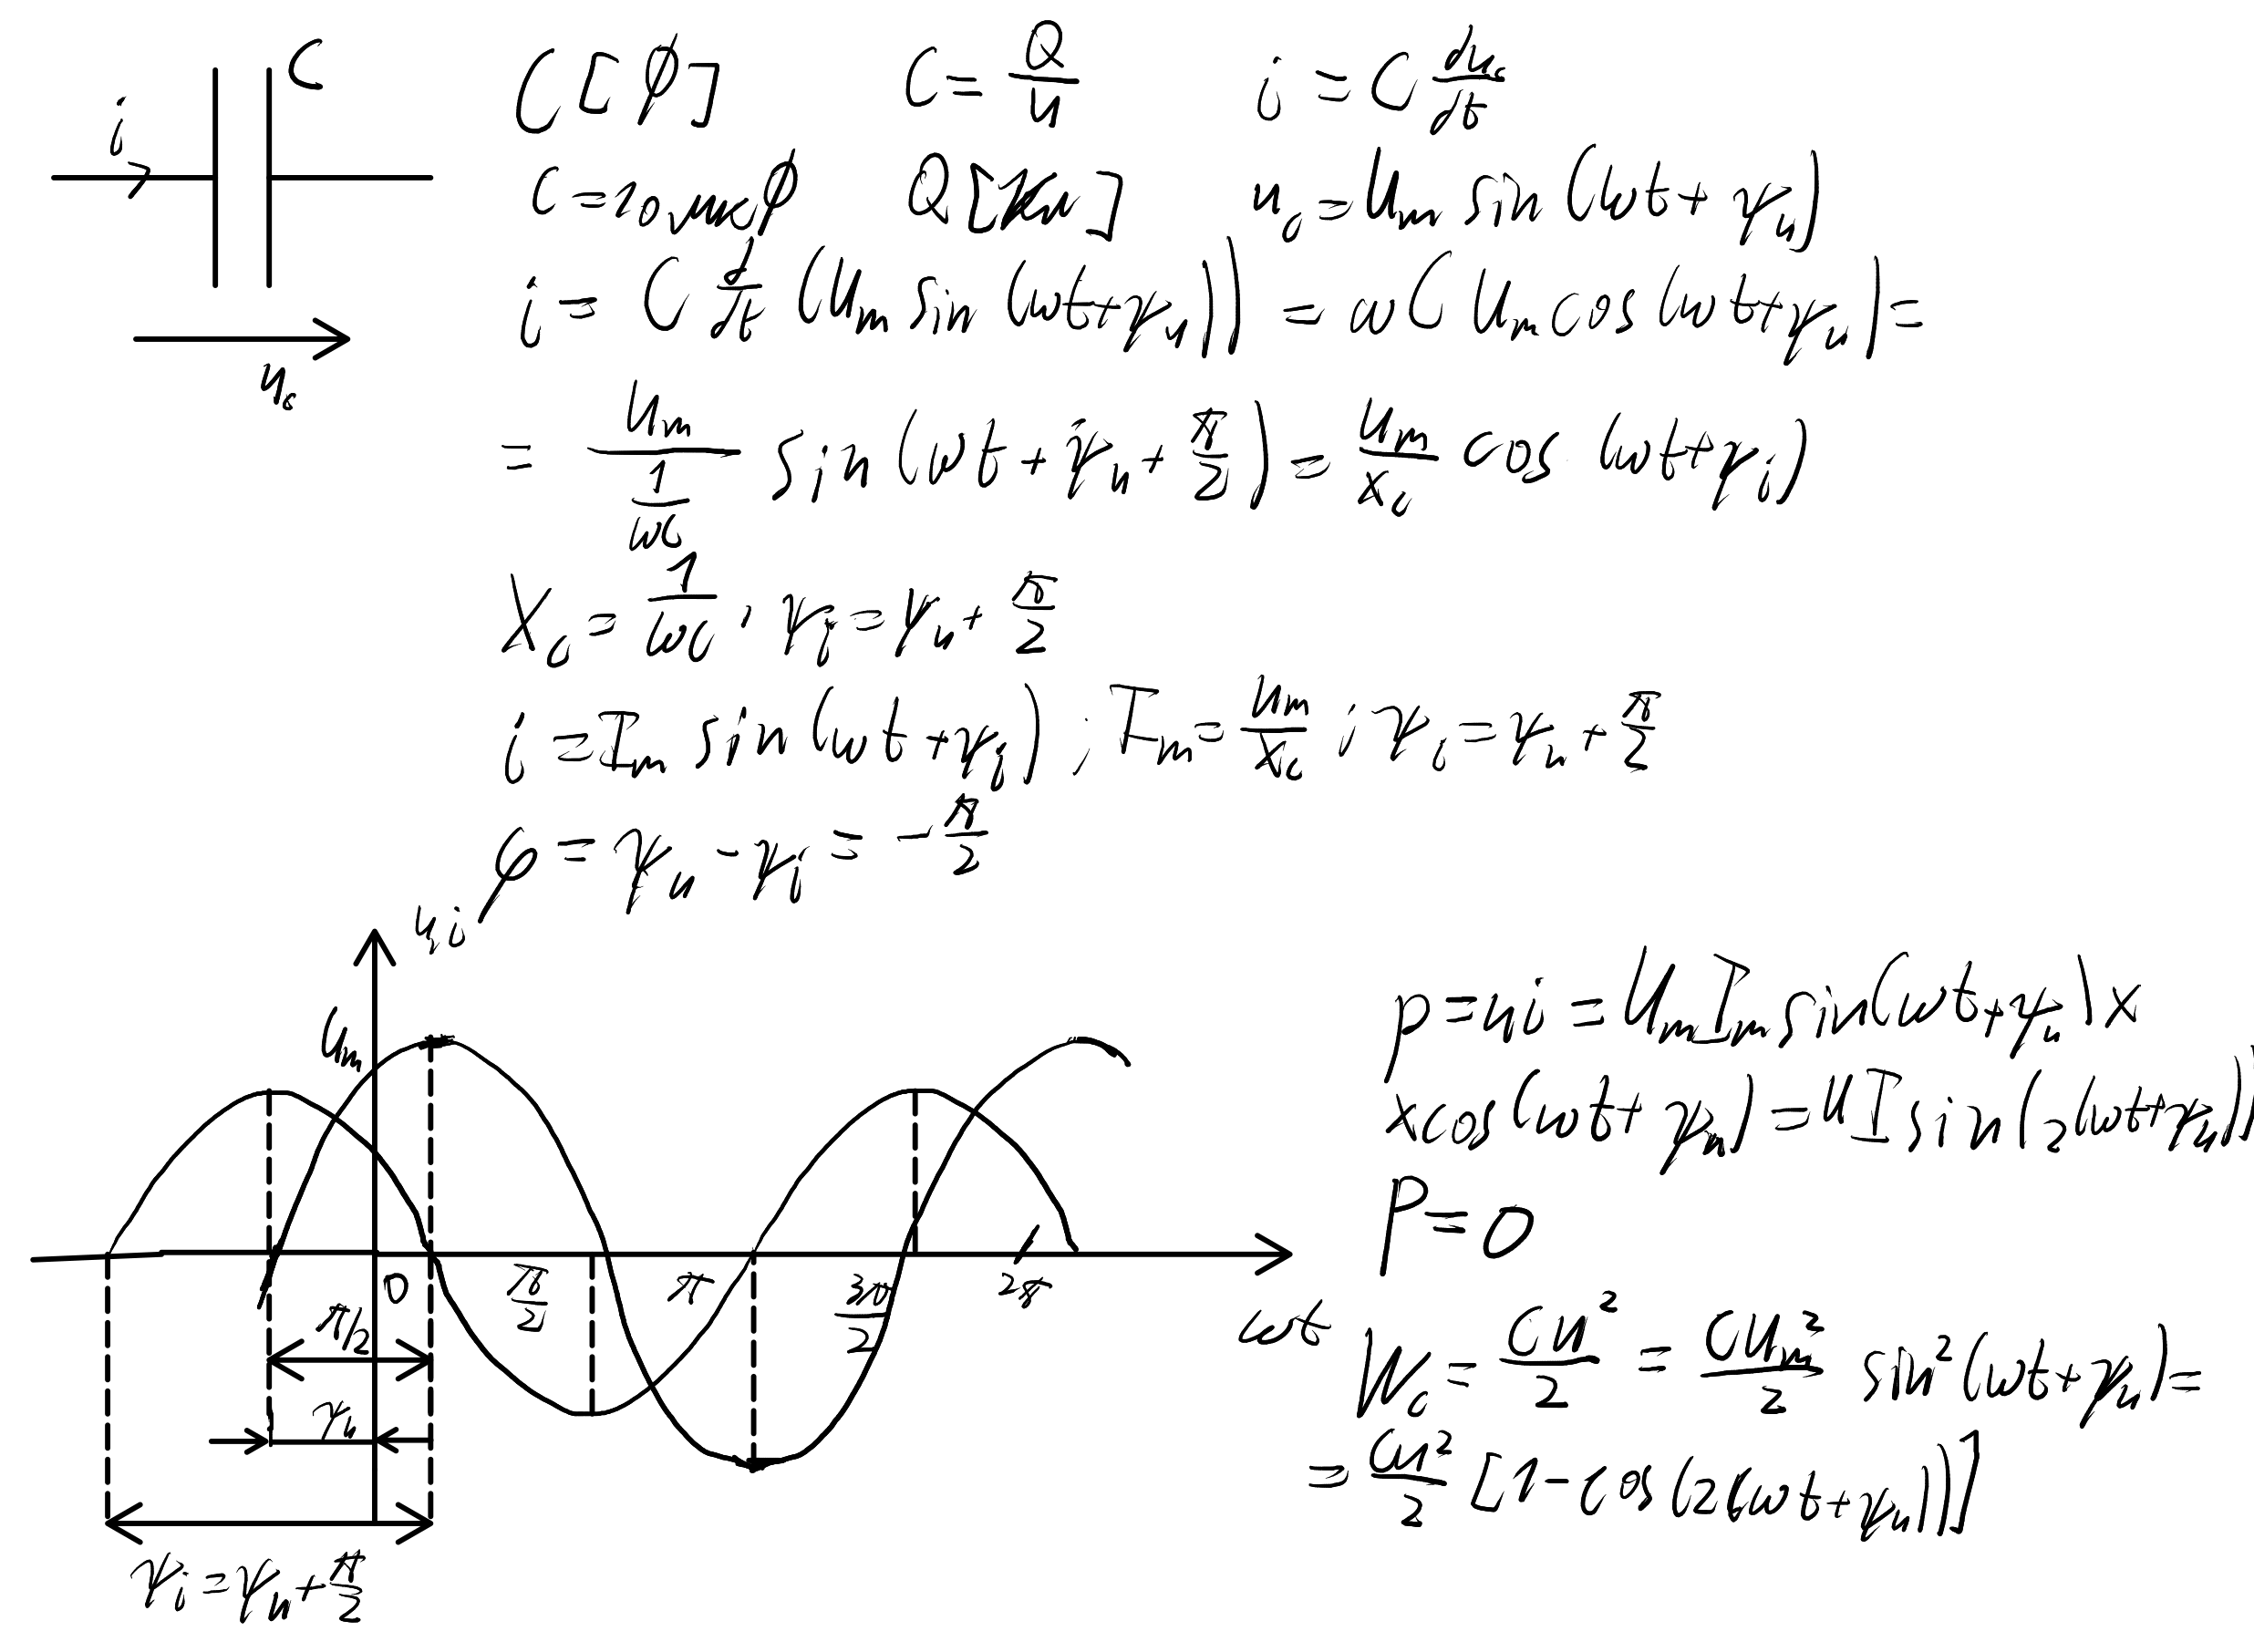 C
i
u_c
C [Ф]    C = Q/U    i = C du_c/dt
C = 10 мкФ    Q [Кл]    u_c = U_m sin(ωt + ψ_u)
i = C d/dt (U_m sin(ωt+ψ_u)) = ωC U_m cos(ωt+ψ_u) =
= U_m / (1/ωC) sin(ωt + ψ_u + π/2) = U_m/x_c cos(ωt+ψ_i)
X_c = 1/ωC , ψ_i = ψ_u + π/2
i = I_m sin(ωt+ψ_i) ; I_m = U_m/X_c ; ψ_i = ψ_u + π/2
φ = ψ_u - ψ_i = -π/2
u,i
U_m
0    π/2    π    3π/2    2π
ωt
π/2
ψ_u
ψ_i = ψ_u + π/2
p = ui = U_m I_m sin(ωt+ψ_u) x
x cos(ωt+ψ_u) = UI sin(2(ωt+ψ_u))
P = 0
W_c = Cu²/2 = CU_m²/2 sin²(ωt+ψ_u) =
= CU²/2 [1 - cos(2(ωt+ψ_u))]